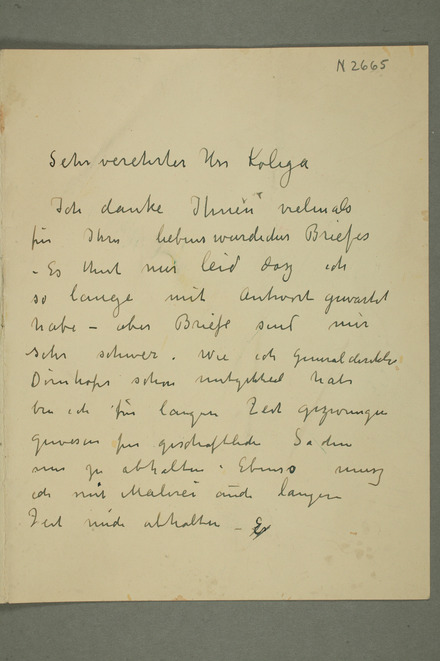 N 2665
Sehr verehrter Herr Kolega
Ich danke Ihnen vielmals
für Ihren liebenswürdiden Briefes
- Es thut mir leid dasz ich
so lange mit Antwort gewartet
habe - aber Briefe sind mir
sehr schwer. Wie ich Generaldirektor
Dörnhofer schon mitgetheilt habe
bin ich für langen Zeit gezwungen
gewesen für geschaftlede Saden
mir zu abhalten. Ebenso musz
ich mit Malerei aude langere
Zeit mide abhalten -